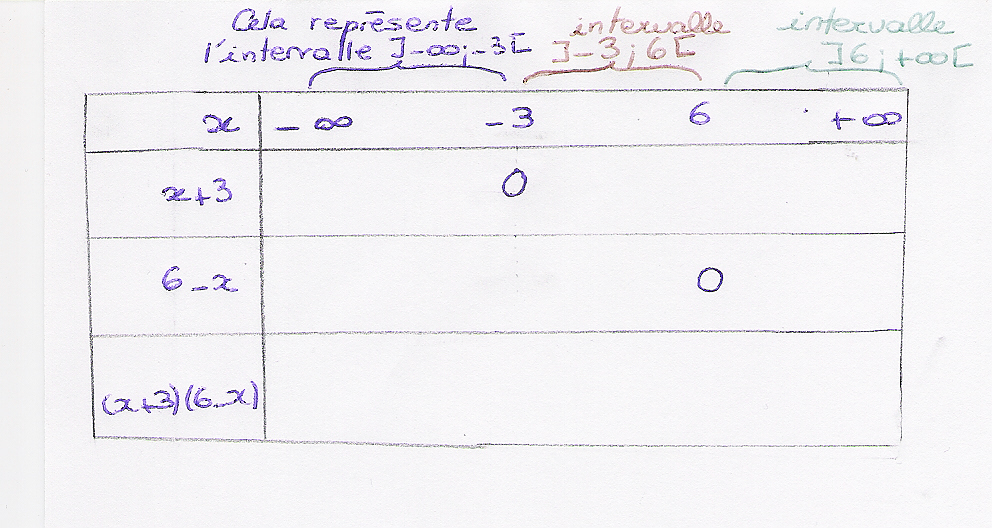 Cela représente intervalle intervalle
l'intervalle ]-∞;-3[ ]-3;6[ ]6;+∞[
x -∞ -3 6 +∞
x+3 0
6-x 0
(x+3)(6-x)